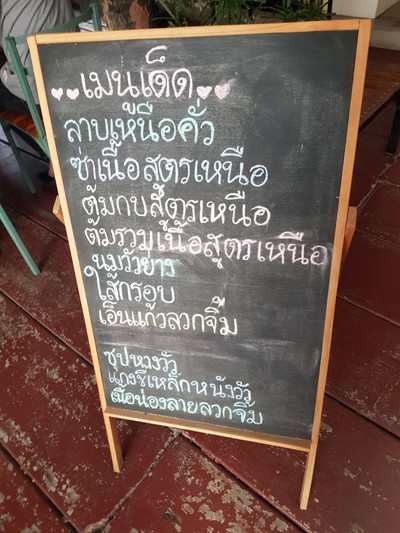 เมนูเด็ด
ลาบเหนือคั่ว
ซ่าเนื้อสูตรเหนือ
ต้มกบสูตรเหนือ
ต้มรวมเนื้อสูตรเหนือ
นมวัวย่าง
ไส้กรอบ
เอ็นแก้วลวกจิ้ม
ซุปหางวัว
แกงขี้เหล็กหนังวัว
เนื้อน่องลายลวกจิ้ม